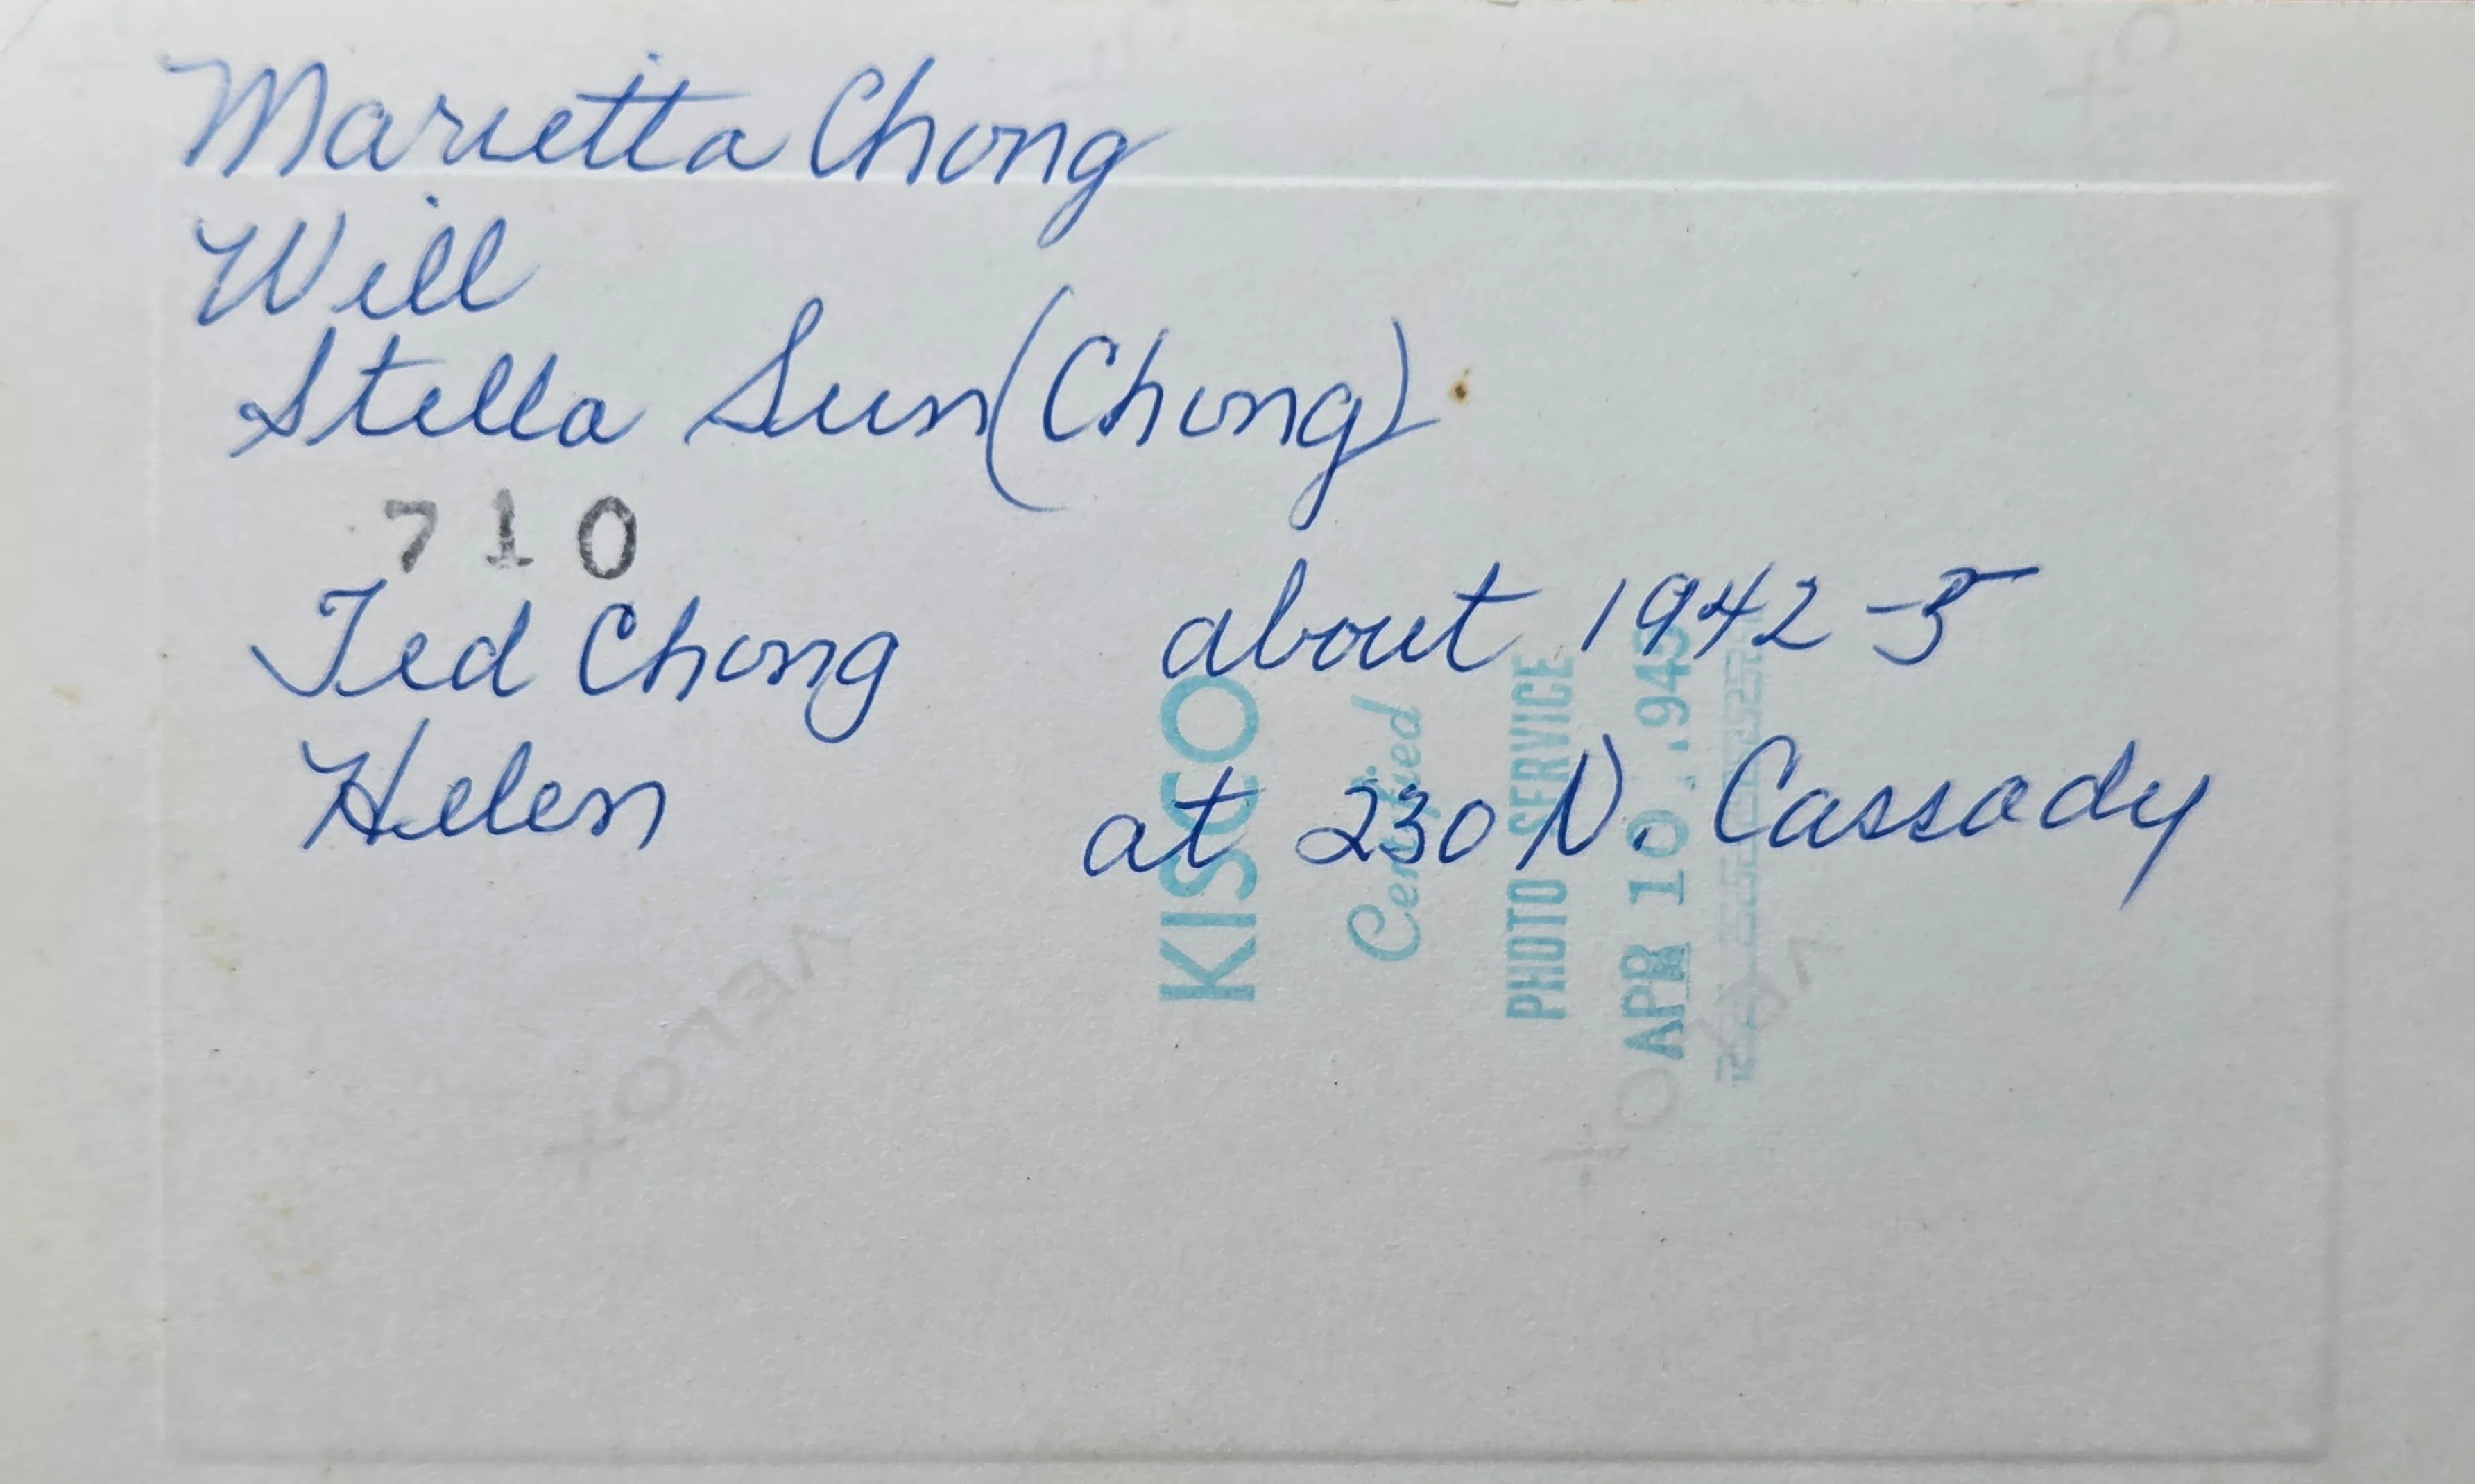 Marietta Chong
Will
Stella Sun (Chong)
710
Ted Chong
Helen
about 1942-5
at 230 N. Cassady
KISCO
Certified
PHOTO SERVICE
APR 10